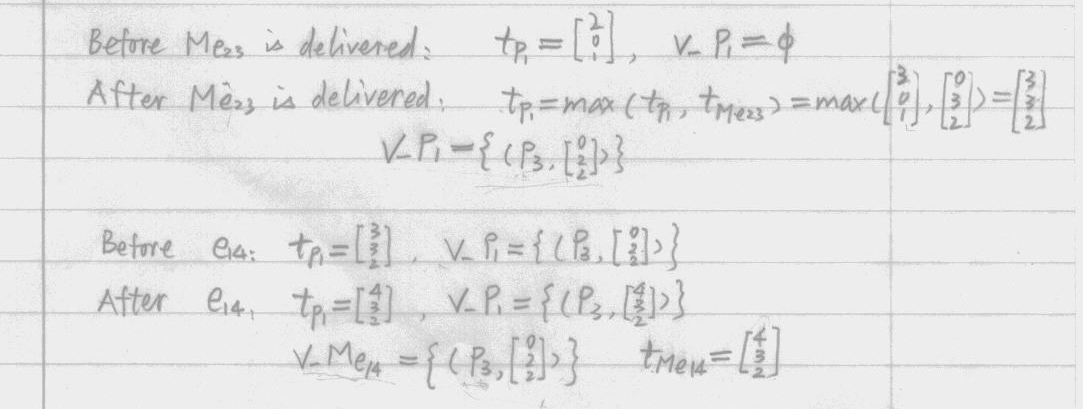 Before Me₂₃ is delivered: t_P₁ = [2 0 1], V_P₁ = ϕ
After Me₂₃ is delivered: t_P₁ = max(t_P₁, t_Me₂₃) = max([3 0 1], [0 3 2]) = [3 3 2]
V_P₁ = {(P₃, [0 2 2])}
Before e₁₄: t_P₁ = [3 3 2], V_P₁ = {(P₃, [0 2 2])}
After e₁₄: t_P₁ = [4 3 2], V_P₁ = {(P₃, [4 3 2])}
V_Me₁₄ = {(P₃, [0 2 2])} t_Me₁₄ = [4 3 2]